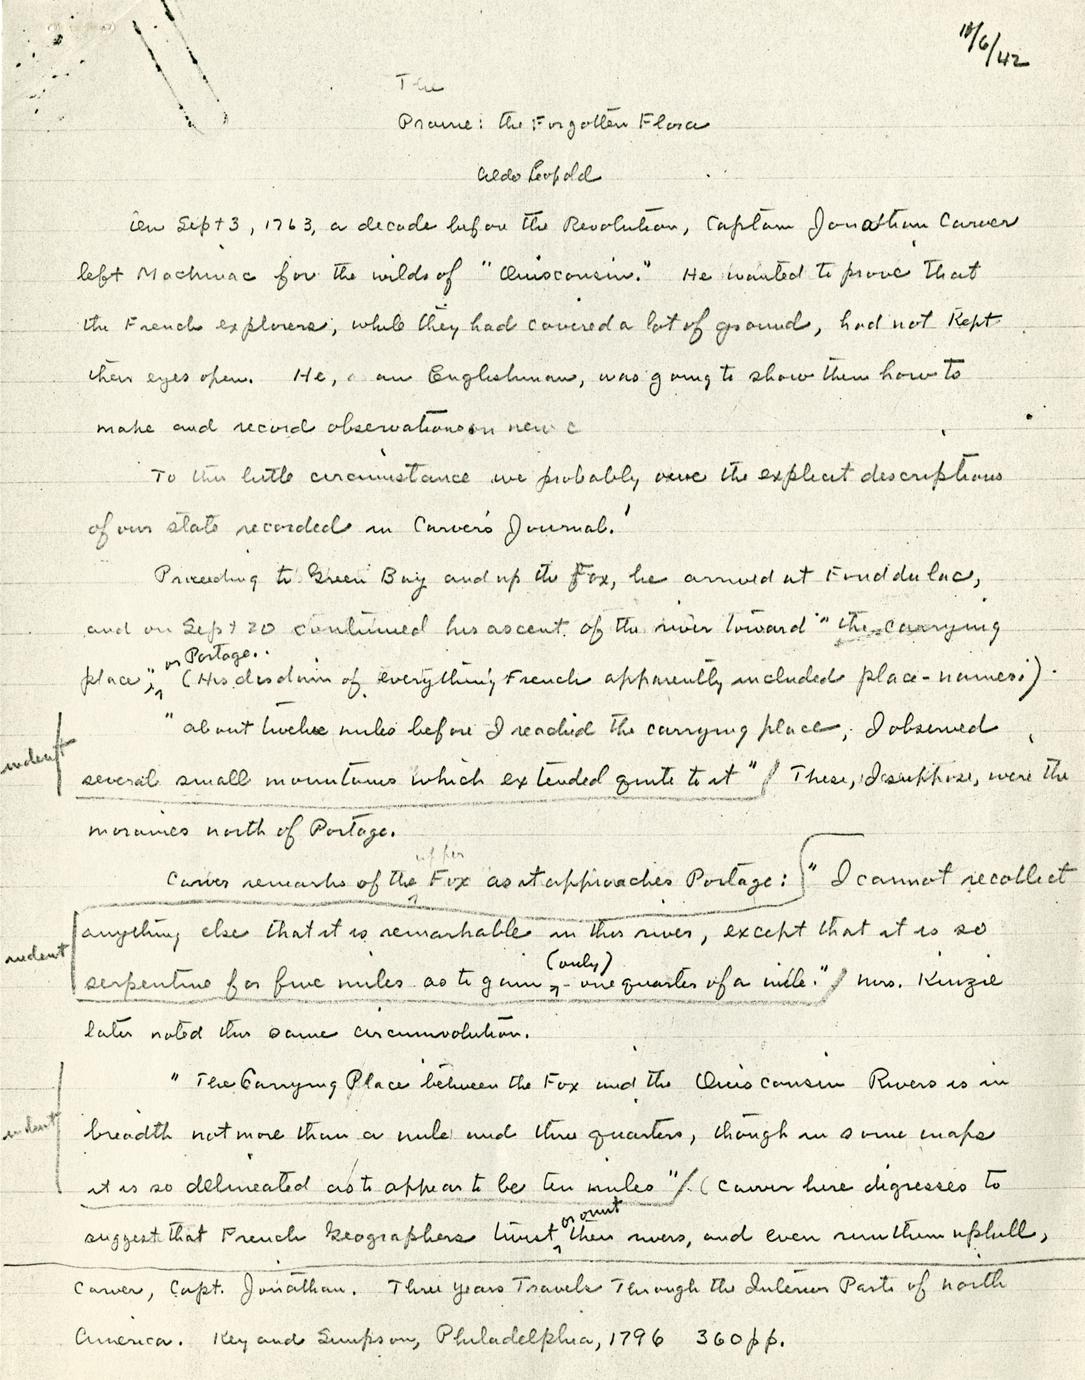 10/6/42
The
Prairie: the Forgotten Flora
Aldo Leopold
On Sept 3, 1763, a decade before the Revolution, Captain Jonathan Carver
left Machinac for the wilds of "Ouisconsin." He wanted to prove that
the French explorers, while they had covered a lot of ground, had not kept
their eyes open. He, an Englishman, was going to show them how to
make and record observations on new c
To this little circumstance we probably owe the explicit descriptions
of our state recorded in Carver's Journal.'
Proceeding to Green Bay and up the Fox, he arrived at Fond du lac,
and on Sept 20 continued his ascent of the river toward "the carrying
or Portage.
place", (His disdain of everything French apparently included place-names:)
indent
"about twelve miles before I reached the carrying place, I observed
several small mountains which extended quite to it" / These, I suppose, were the
moraines north of Portage.
upper
Carver remarks of the Fox as it approaches Portage: "I cannot recollect
indent
anything else that it is remarkable in this river, except that it is so
(only)
serpentine for five miles as to gain - one quarter of a mile." / Mrs. Kinzie
later noted this same circumvolution.
indent
"The Carrying Place between the Fox and the Ouisconsin Rivers is in
breadth not more than a mile and three quarters, though in some maps
it is so delineated as to appear to be ten miles" /. (Carver here digresses to
or omit
suggest that French Geographers twist their rivers, and even run them uphill,
Carver, Capt. Jonathan. Three Years Travels Through the Interior Parts of North
America. Key and Simpson, Philadelphia, 1796 360 pp.